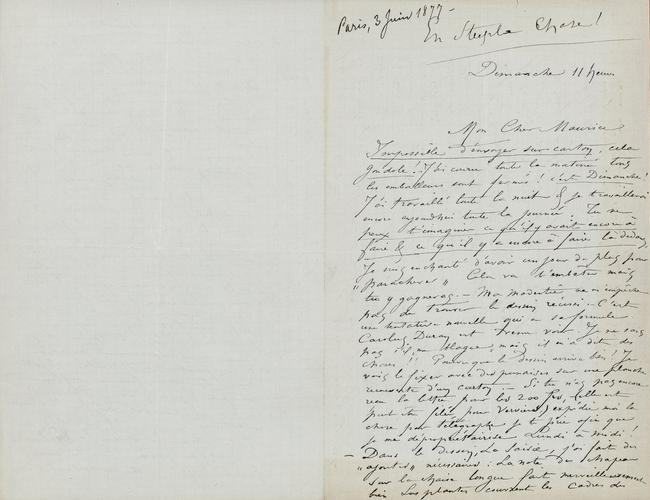 Paris, 3 Juin 1877 -
En Steeple Chase!
Dimanche 11 heures
Mon Cher Maurice
Impossible d'envoyer sur carton, cela
gondole! J'ai couru toute la matinée tous
les emballeurs sont fermés! c'est Dimanche!
J'ai travaillé toute la nuit & je travaillerai
encore aujourdhui toute la journée. Tu ne
peux t'imaginer ce qu'il y avait encore à
faire & ce qu'il y a encore à faire là dedans,
Je suis enchanté d'avoir un jour de plus pour
"parachever" Cela va t'embêter mais
tu y gagneras. - Ma modestie ne m'empêche
pas de trouver le dessin réussi. - C'est
une tentative nouvelle qui a sa formule
Carolus Duran est venu voir. Je ne sais
pas s'il me blague, mais il m'a dit des
choses!! Pourvu que le dessin arrive bien! Je
vais le fixer avec des punaises sur une planche
recouverte d'un carton - Si tu n'as pas encore
reçu la lettre pour les 200 frs, (elle est
peut être filé pour Verviers) expédie moi la
chose par télégraphe je te prie afin que
je me dépropriétairise Lundi à midi!
- Dans le dessin, La Saisie, j'ai fait des
"ajoutés" nécessaires: La note du chapeau
sur la chaise longue fait merveilleusement
bien Les plantes couvrent les cadres du